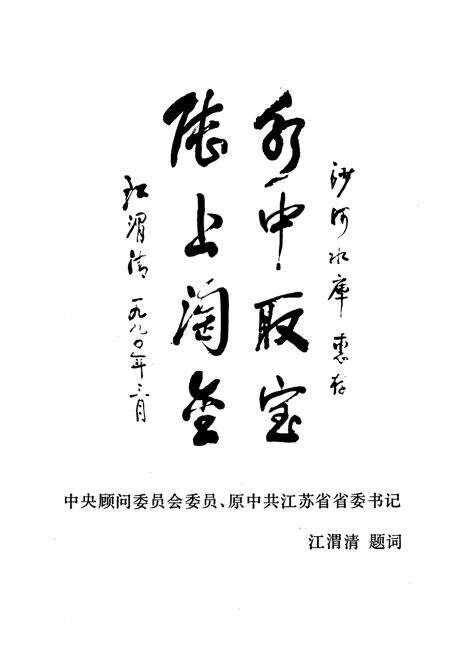 沙河水库惠存
水中取宝
陆上淘金
江渭清 一九八〇年三月
中央顾问委员会委员、原中共江苏省省委书记
江渭清 题词